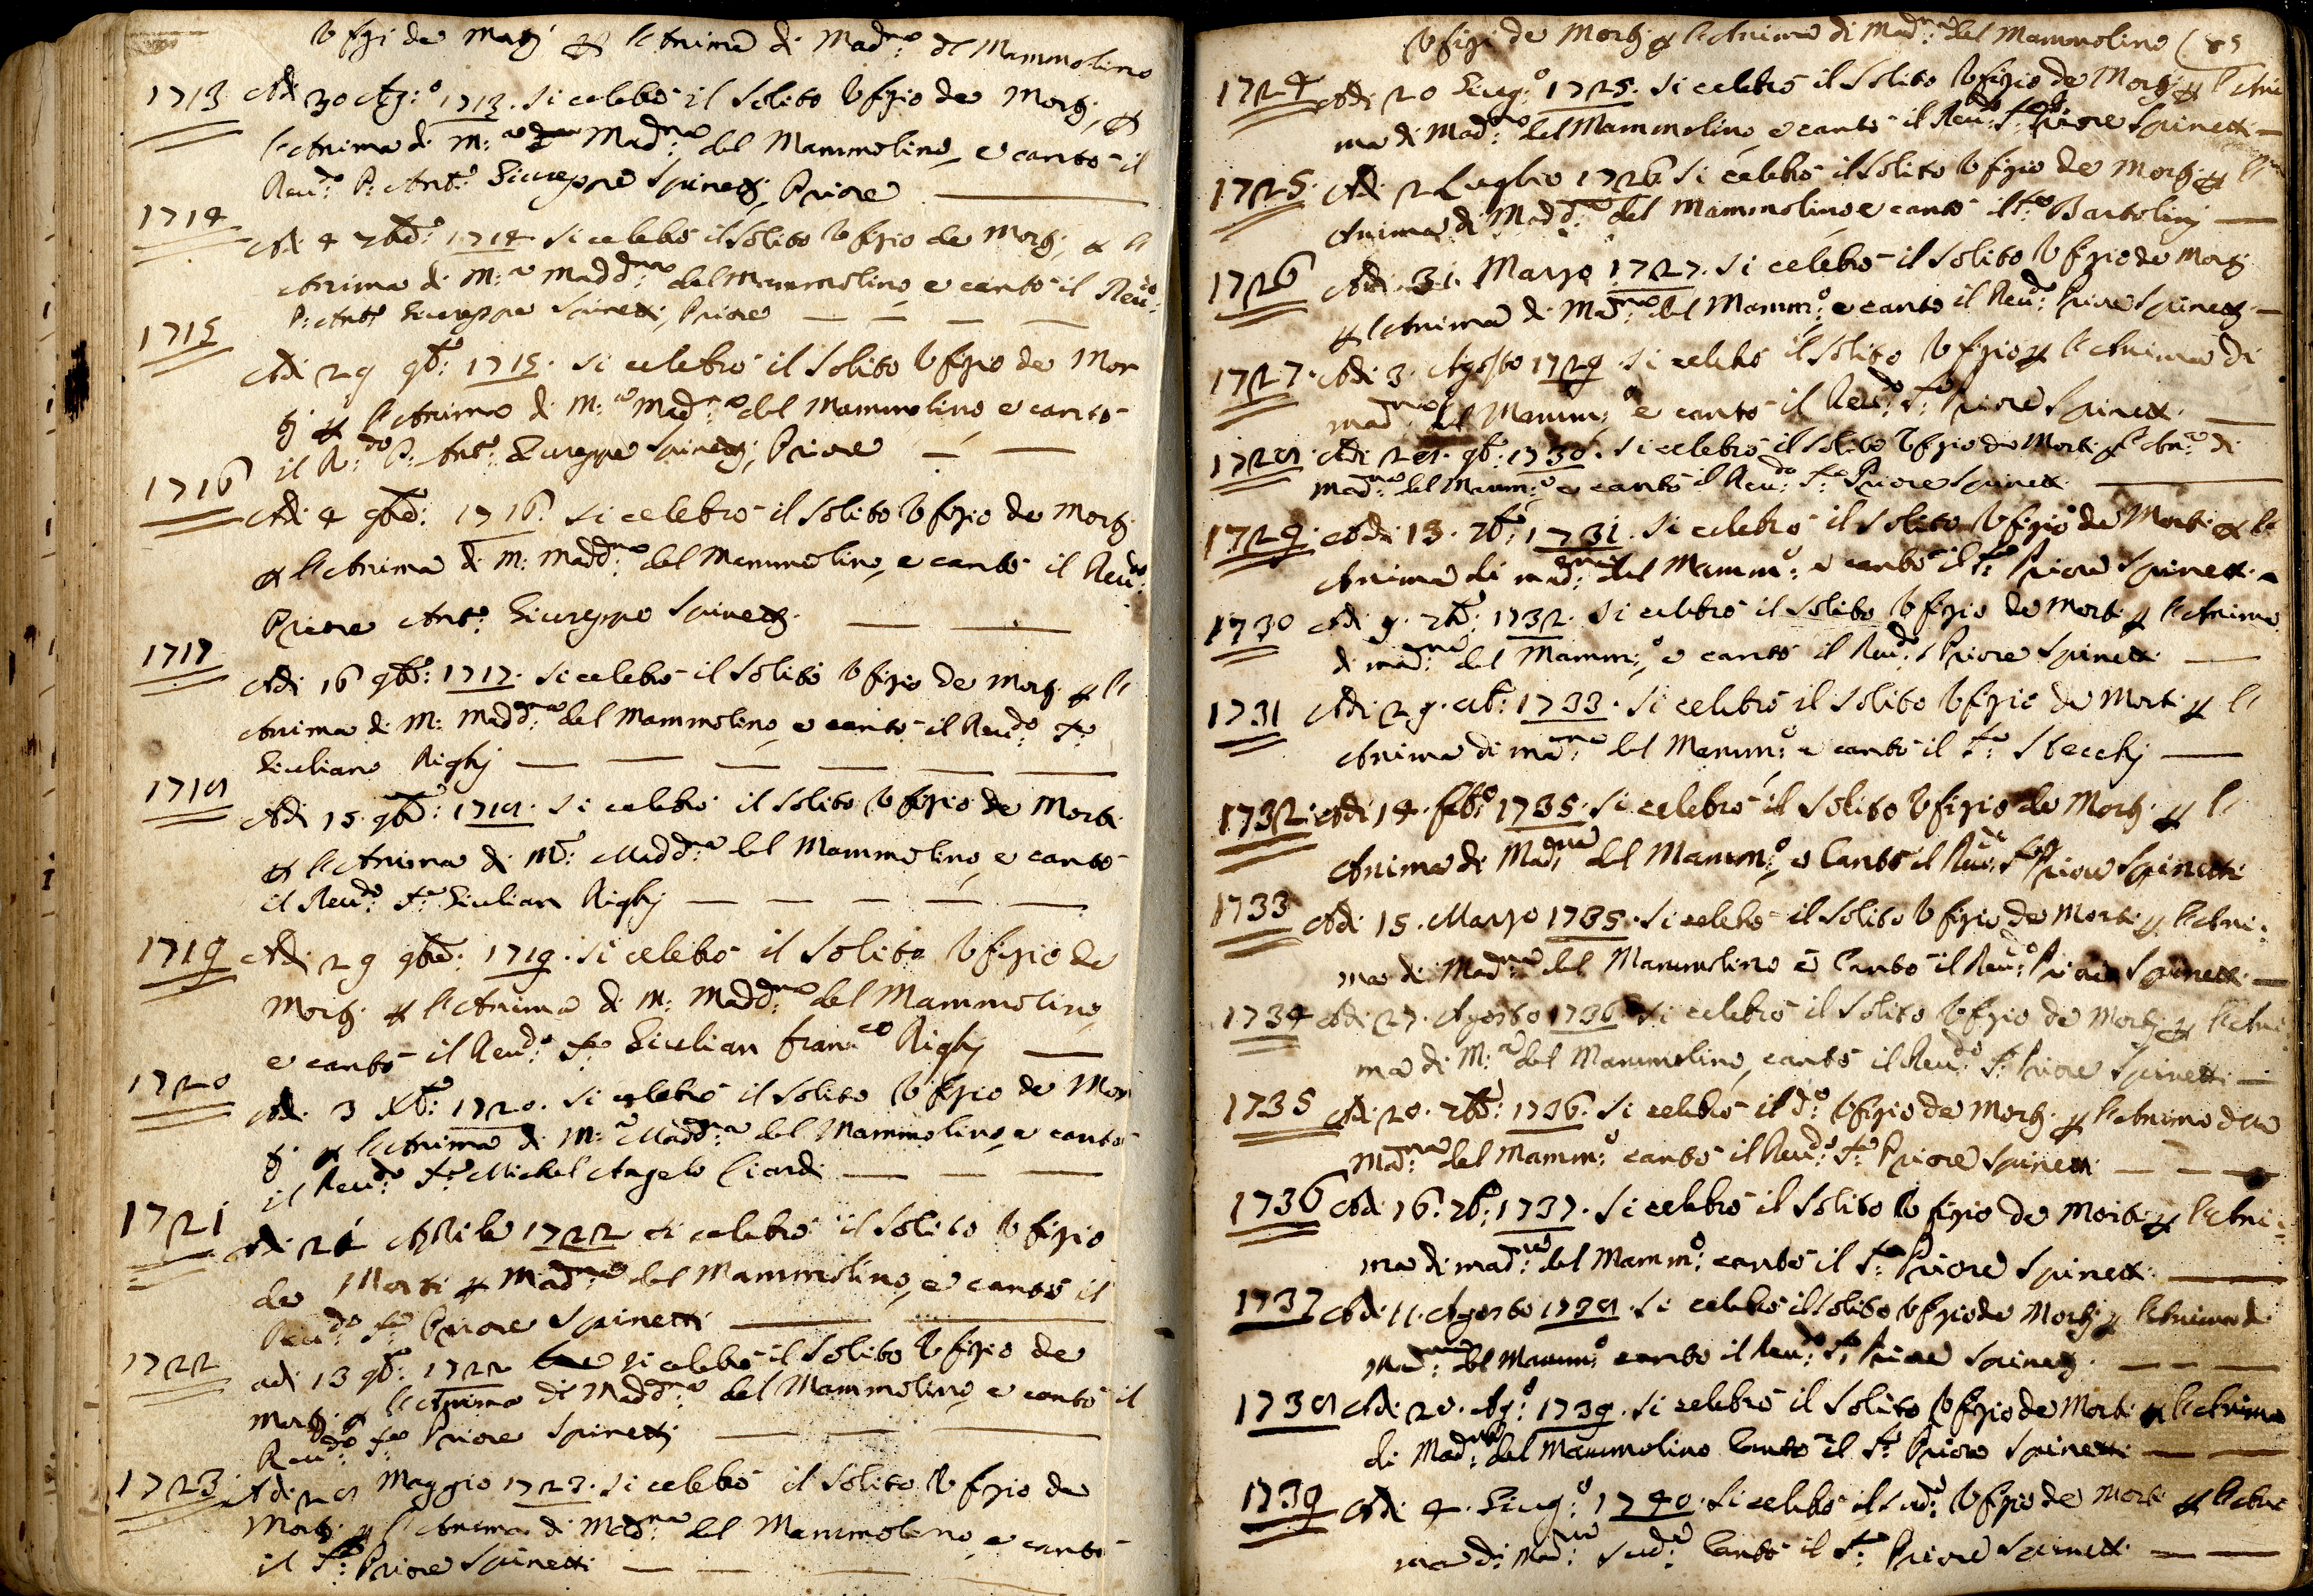 Ufizi de Morti p l'Anima di Madna: del Mammolino
1713 Adi 30 Ag:o 1713. si celebrò il solito Ufizio de Morti, p
l'Anima di M:a Madna: del Mammolino, e cantò il
Reudo: P: Anto: Giuseppe Spinetti, Priore
1714
Adi 4 7bre: 1714 si celebrò il solito Ufizio de Morti, p l'
Anima di M:a Maddna: del Mammolino, e cantò il Reudo:
P: Anto: Giuseppe Spinetti, Priore
1715
Adi 29 9b: 1715. si celebrò il solito Ufizio de Mor
ti p l'Anima di M:a Madna: del Mammolino, e cantò
il R:do P: Anto: Giuseppe Spinetti, Priore
1716
Adi 4 9bre: 1716. si celebrò il solito Ufizio de Morti
p l'Anima di M: Maddna: del Mammolino, e cantò il Reudo:
Priore Anto: Giuseppe Spinetti.
1717
Adi 16 9bre: 1717. si celebrò il solito Ufizio de Morti p l'
Anima di M: Maddna: del Mammolino, e cantò il Reudo: Fr:
Giuliano Righj
1718
Adi 15. 9bre: 1718. si celebrò il solito Ufizio de Morti
p l'Anima di Ma: Maddna: del Mammolino, e cantò
il Reudo: Fr: Giulian Righj
1719 Adi 29 9bre: 1719. si celebrò il solito Ufizio de
Morti p l'Anima di M: Maddna: del Mammolino,
e cantò il Reudo: Fr: Giulian Franco Righj
1720
Adi 3 Xb: 1720. si celebrò il solito Ufizio de Mor
ti p l'Anima di M:a Maddna: del Mammolino, e cantò
il Reudo: Fr: Michel Angelo Ciardi
1721
Adi Aprile 1722 si celebrò il solito Ufizio
de Morti p Madna: del Mammolino, e cantò il
Reudo: Fr: Priore Spinetti
1722
adi 13 9b: 1722 si celebrò il solito Ufizio de
Morti p l'Anima di Maddna: del Mammolino, e cantò il
Reudo: Fr: Priore Spinetti
1723 Adi 28 Maggio 1723. si celebrò il solito Ufizio de
Morti p l'Anima di Madna: del Mammolino, e cantò
il Fr: Priore Spinetti
Ufizi de Morti p l'Anima di Madna: del Mammolino (85
1724 Adi 20 Giug:o 1725. si celebrò il solito Ufizio de Morti p l'Ani
ma di Madna: del Mammolino, e cantò il Reudo: Fr: Priore Spinetti
1725. Adi 2 Luglio 1726. si celebrò il solito Ufizio de Morti p l'
Anima di Maddna: del Mammolino e cantò il Fr: Bartolinj
1726 Adi 31. Marzo 1727. si celebrò il solito Ufizio de Morti
p l'Anima di Madna: del Mamm:o e cantò il Reudo: Priore Spinetti
1727. Adi 3. Agosto 1729. si celebrò il solito Ufizio p l'Anima di
Madna: del Mamm:o e cantò il Reudo: Fr: Priore Spinetti.
1728. Adi 28. 9b: 1730. si celebrò il solito Ufizio de Morti p l'Ana: di
Madna: del Mamm:o e cantò il Reudo: Fr: Priore Spinetti
1729. Adi 13. 7b: 1731. si celebrò il solito Ufizio de Morti p l'
Anima di Madna: del Mammo: e cantò il Fr: Priore Spinetti
1730 Adi 9. 7b: 1732. si celebrò il solito Ufizio de Morti p l'Anima
di Madna: del Mamm:o e cantò il Reudo: Priore Spinetti
1731 Adi 29. 1733. si celebrò il solito Ufizio de Morti p l'
Anima di Madna: del Mamm:o e cantò il Fr: Stecchj
1732. Adi 14. Feb:o 1735. si celebrò il solito Ufizio de Morti p l'
Anima di Madna: del Mamm:o e Cantò il Reudo: Fr: Priore Spinetti
1733 Adi 15. Marzo 1735. si celebrò il solito Ufizio de Morti p l'Ani:
ma di Madna: del Mammolino e Cantò il Reudo: Priore Spinetti
1734 Adi 27. Agosto 1736 si celebrò il solito Ufizio de Morti p l'Ani
ma di M:a del Mammolino, cantò il Reudo: Fr: Priore Spinetti
1735 Adi 20. 7b: 1736. si celebrò il do: Ufizio de Morti p l'Anima della
Madna: del Mamm:o cantò il Reudo: Fr: Priore Spinetti
1736 Adi 16. 7b: 1737. si celebrò il solito Ufizio de Morti p l'Ani:
ma di Madna: del Mamm:o cantò il Fr: Priore Spinetti
1737 Adi 11. Agosto 1738. si celebrò il solito Ufizio de Morti p l'Anima di
Madna: del Mamm:o cantò il Reudo: Fr: Priore Spinetti.
1738 Adi 20. Ag:o 1739. si celebrò il solito Ufizio de Morti p l'Anima
di Madna: del Mammolino Cantò il Fr: Priore Spinetti
1739 Adi 4. Giug:o 1740. si celebrò il sudo: Ufizio de Morti p l'Ani
ma di Madna: suda: Cantò il Fr: Priore Spinetti